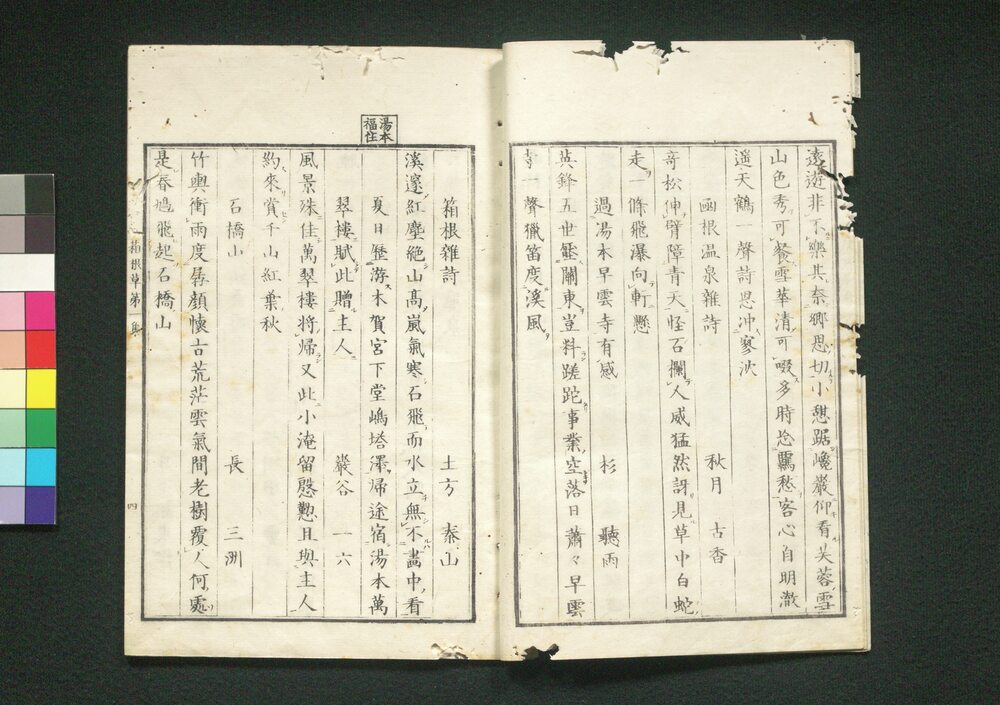 遠遊非不樂其奈郷思切小憩踞巉巖仰看芙蓉雪
山色秀可餐雪華清可啜多時忘羈愁客心自明澈
遥天鶴一聲詩思冲寥泬
函根温泉雜詩 秋月 古香
奇松伸臂障青天怪石欄人威猛然訝見草中白蛇
走一條飛瀑向軒懸
過湯本早雲寺有感 杉 聽雨
英鋒五世壓關東豈料蹉跎事業空落日蕭々早雲
寺一聲獵笛度溪風
湯本
福住
箱根雜詩 土方 泰山
溪邃紅塵絶山高嵐氣寒石飛而水立無不畵中看
夏日歴游木賀宮下堂嶋塔澤歸途宿湯本萬
翠樓賦此贈主人 巖谷 一六
風景殊佳萬翠樓將歸又此小淹留慇懃且與主人
約來賞千山紅葉秋
石橋山 長 三洲
竹輿衝雨度孱顔懷古荒茫雲氣間老樹覆人何處
是春鳩飛起石橋山
箱根草第一集
四